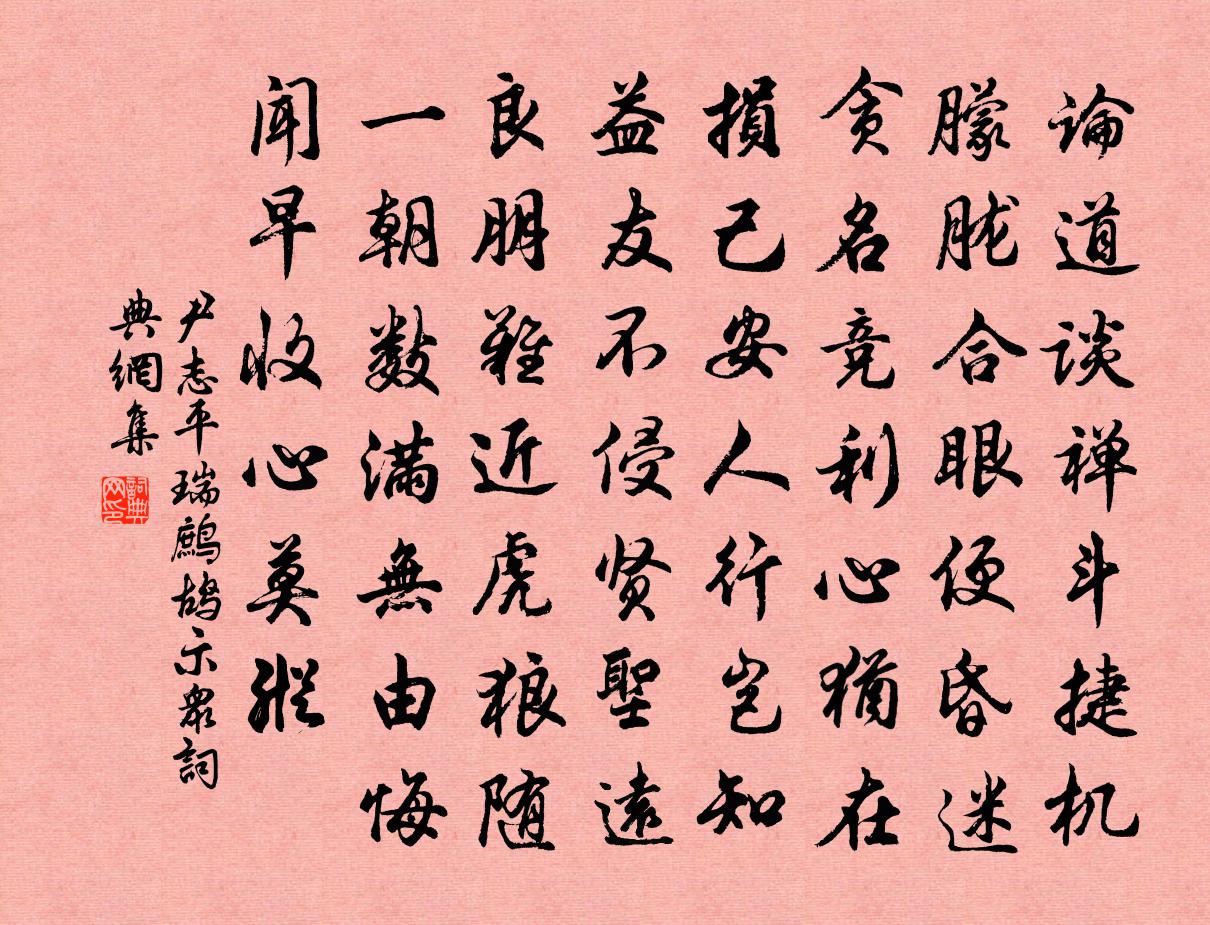 論道谈禅斗捷机
朦胧合眼便昏迷
贪名竞利心猶在
損己安人行岂知
益友不侵贤聖遠
良朋难近虎狼随
一朝数满無由悔
闻早收心莫縱
尹志平瑞鹧鸪示衆詞
典網集
詞典网印